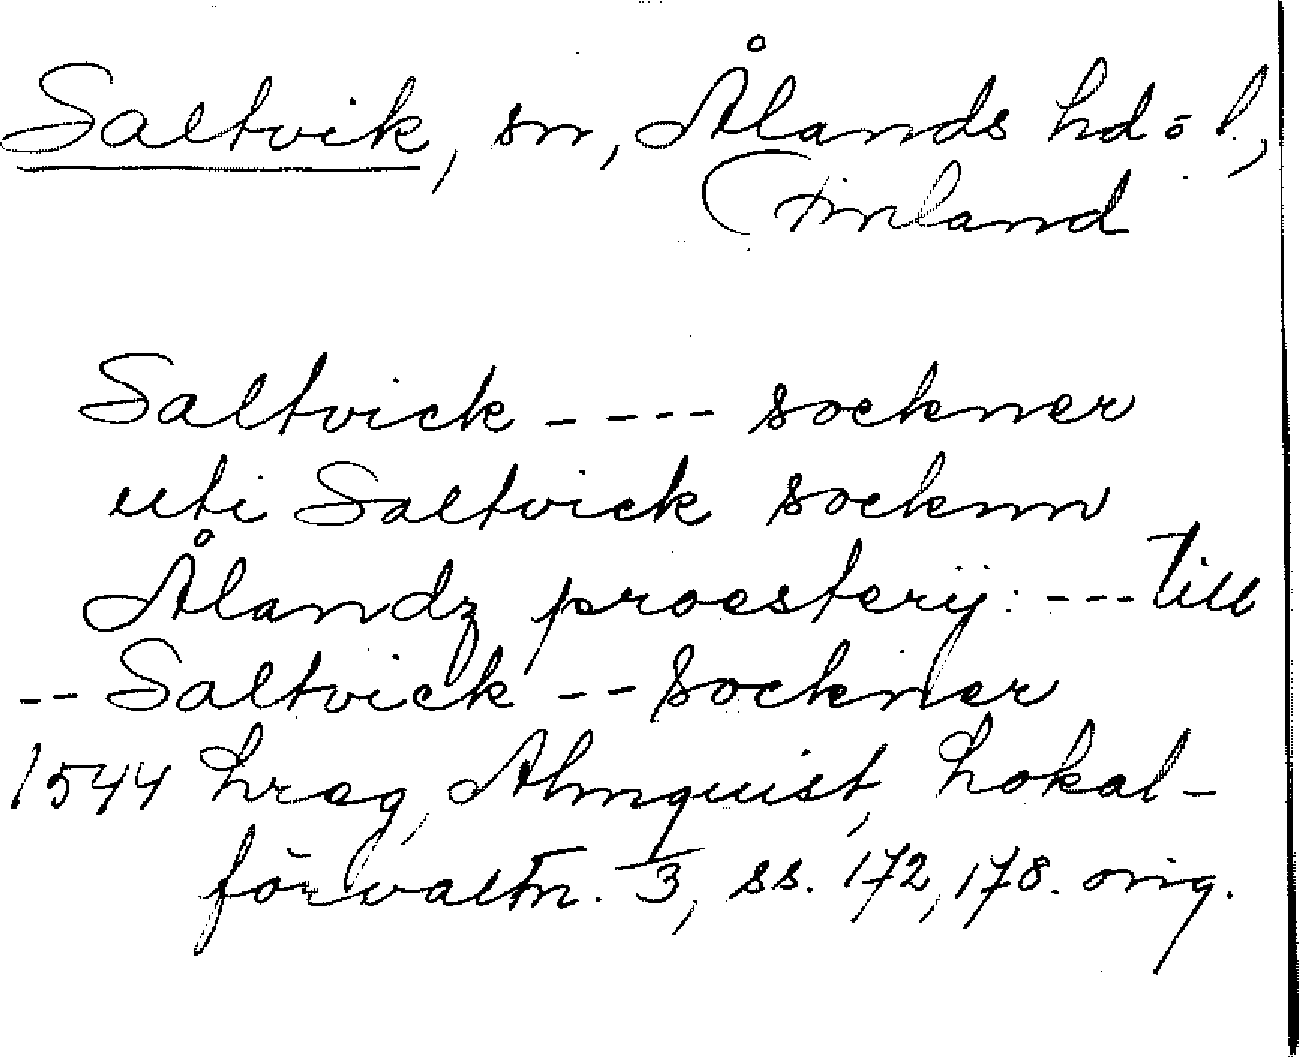 Saltvik, sn, Ålands hd o l.,
Finland
Saltvick ---- sockner
uti Saltvick socknn
Ålandz proesterij: --- till
-- Saltvick -- sockner
1544 hreg, Almquist, Lokal-
förvaltn. 3, ss. 172, 178. orig.